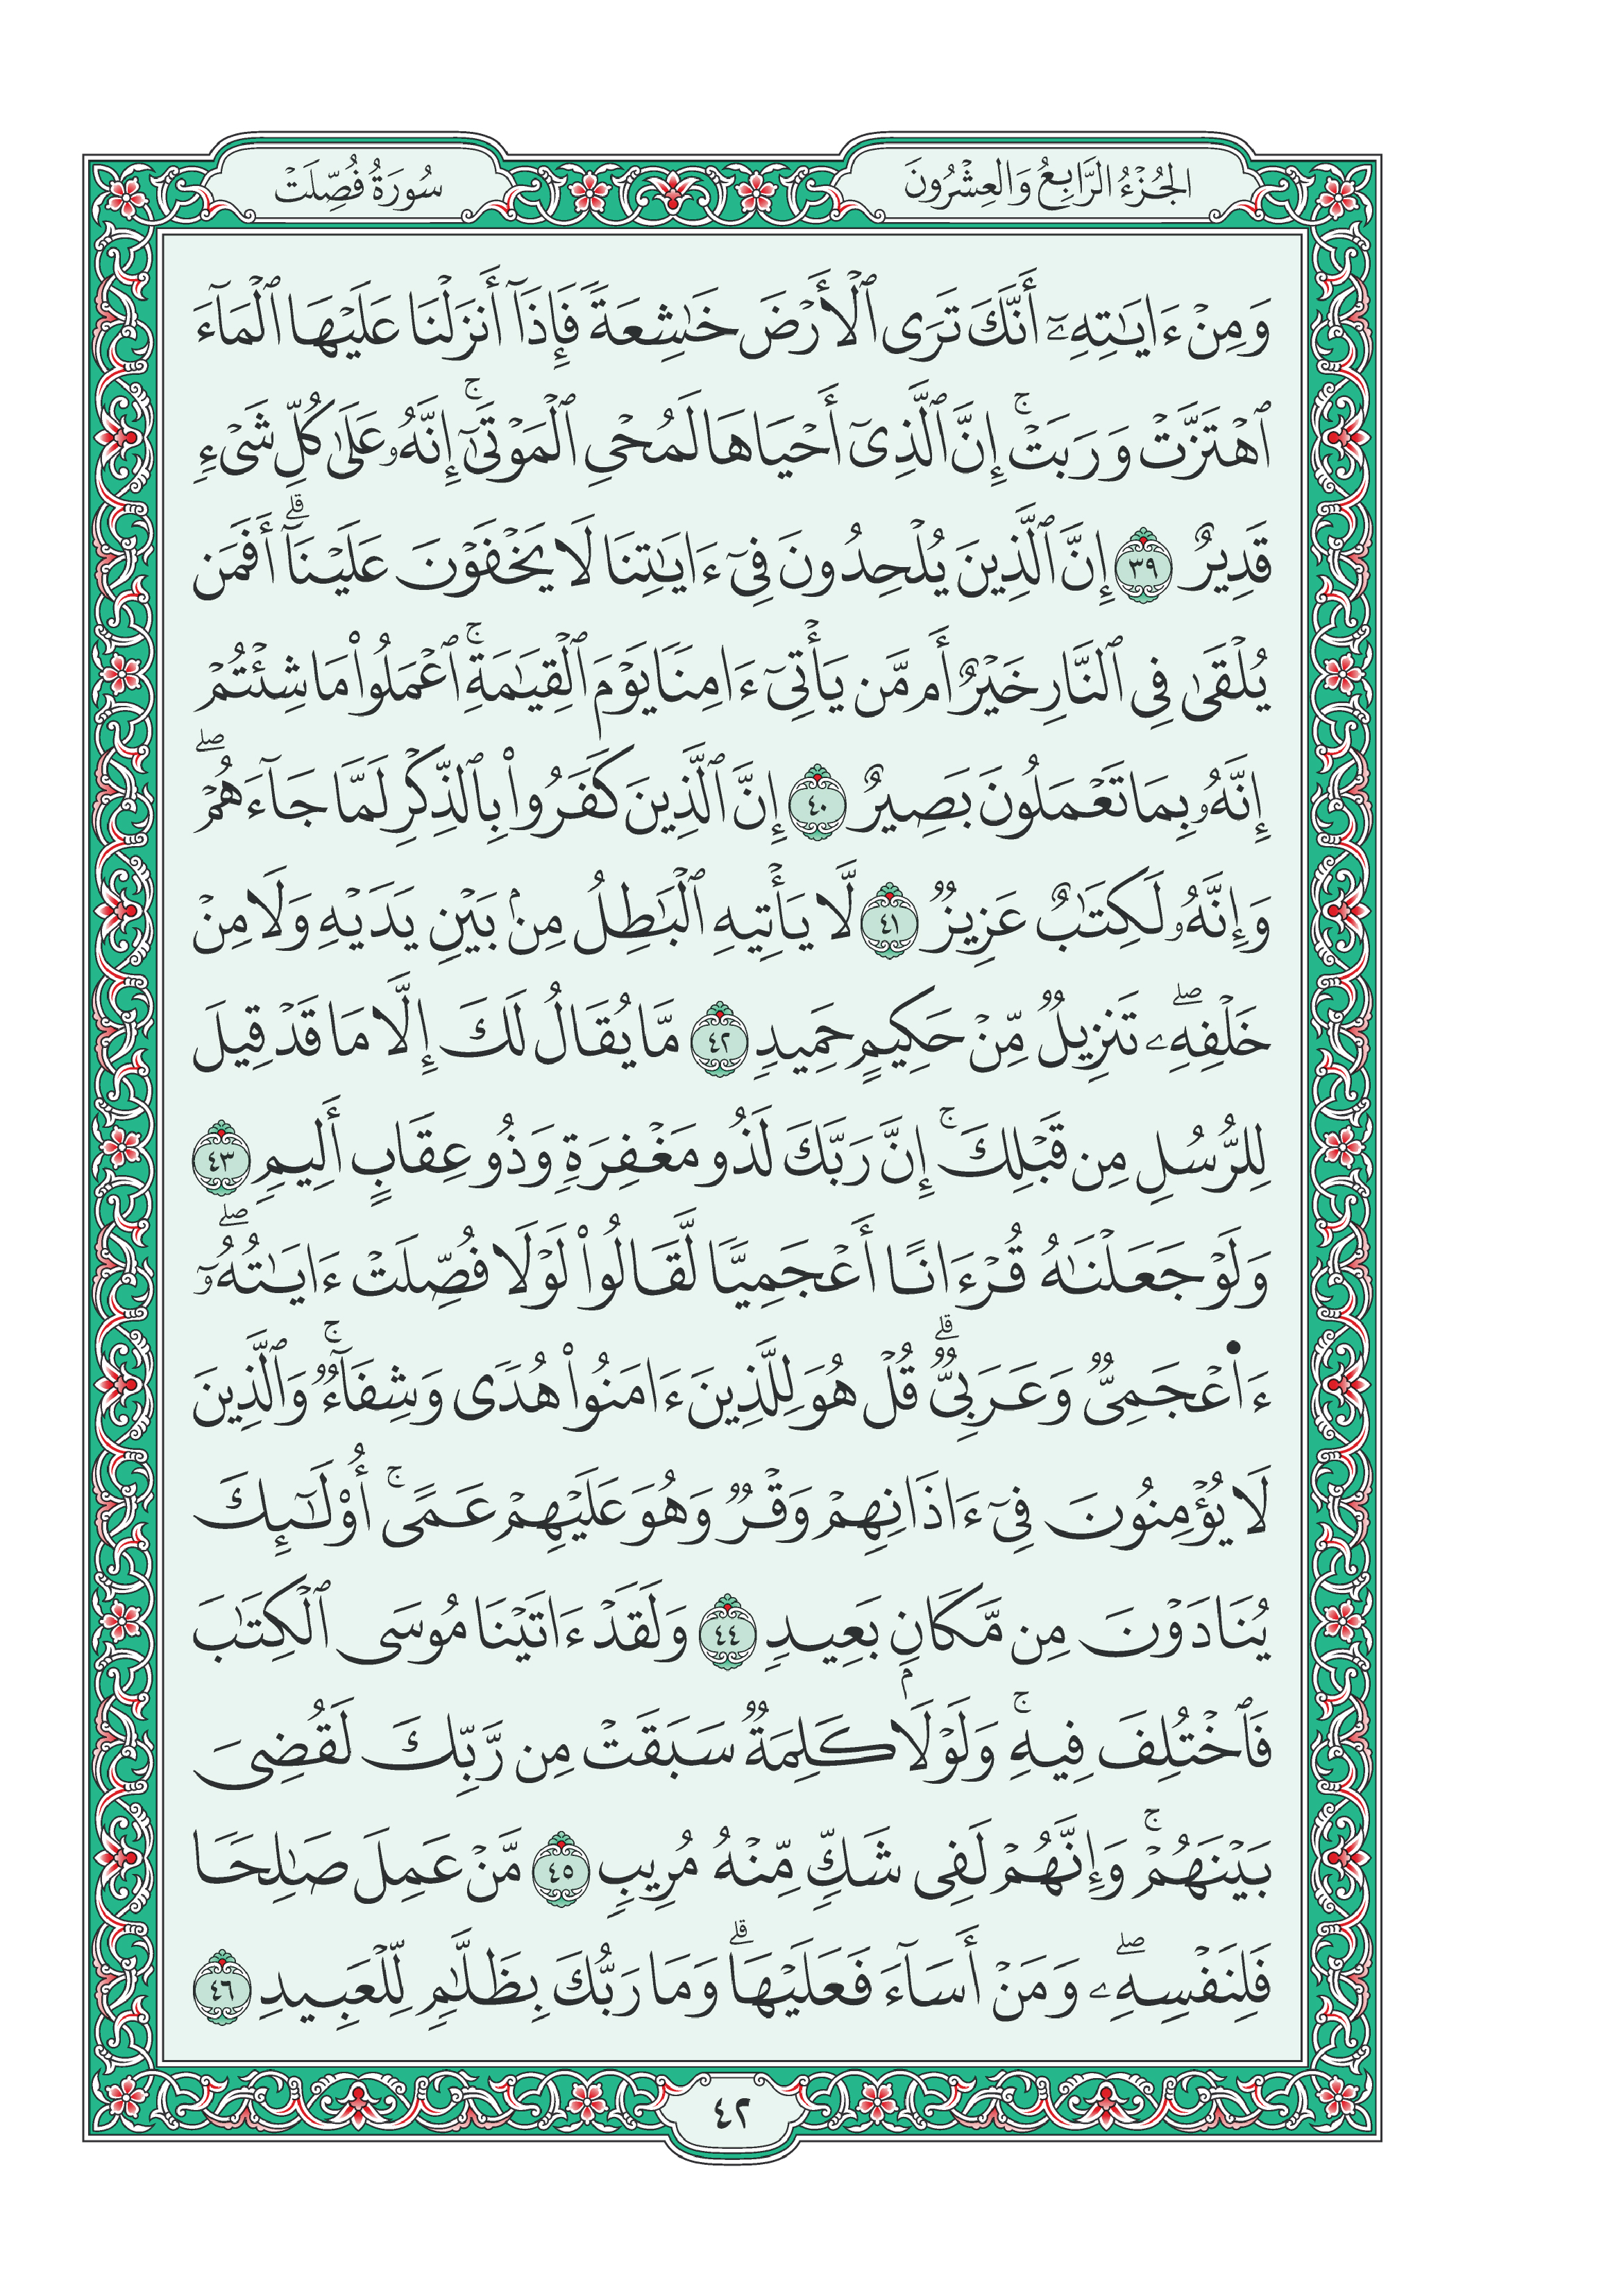 الجُزْءُ الرَّابِعُ وَالعِشْرُونَ
سُورَةُ فُصِّلَتْ
وَمِنْ ءَايَٰتِهِۦٓ أَنَّكَ تَرَى ٱلْأَرْضَ خَٰشِعَةً فَإِذَآ أَنزَلْنَا عَلَيْهَا ٱلْمَآءَ
ٱهْتَزَّتْ وَرَبَتْۚ إِنَّ ٱلَّذِىٓ أَحْيَاهَا لَمُحْىِ ٱلْمَوْتَىٰٓۚ إِنَّهُۥ عَلَىٰ كُلِّ شَىْءٍ
قَدِيرٌ ٣٩ إِنَّ ٱلَّذِينَ يُلْحِدُونَ فِىٓ ءَايَٰتِنَا لَا يَخْفَوْنَ عَلَيْنَآۗ أَفَمَن
يُلْقَىٰ فِى ٱلنَّارِ خَيْرٌ أَم مَّن يَأْتِىٓ ءَامِنًا يَوْمَ ٱلْقِيَٰمَةِۚ ٱعْمَلُوا۟ مَا شِئْتُمْ
إِنَّهُۥ بِمَا تَعْمَلُونَ بَصِيرٌ ٤٠ إِنَّ ٱلَّذِينَ كَفَرُوا۟ بِٱلذِّكْرِ لَمَّا جَآءَهُمْۖ
وَإِنَّهُۥ لَكِتَٰبٌ عَزِيزٌ ٤١ لَّا يَأْتِيهِ ٱلْبَٰطِلُ مِنۢ بَيْنِ يَدَيْهِ وَلَا مِنْ
خَلْفِهِۦۖ تَنزِيلٌ مِّنْ حَكِيمٍ حَمِيدٍ ٤٢ مَّا يُقَالُ لَكَ إِلَّا مَا قَدْ قِيلَ
لِلرُّسُلِ مِن قَبْلِكَۚ إِنَّ رَبَّكَ لَذُو مَغْفِرَةٍ وَذُو عِقَابٍ أَلِيمٍ ٤٣
وَلَوْ جَعَلْنَٰهُ قُرْءَانًا أَعْجَمِيًّا لَّقَالُوا۟ لَوْلَا فُصِّلَتْ ءَايَٰتُهُۥٓۖ
ءَا۬عْجَمِىٌّ وَعَرَبِىٌّۗ قُلْ هُوَ لِلَّذِينَ ءَامَنُوا۟ هُدًى وَشِفَآءٌۚ وَٱلَّذِينَ
لَا يُؤْمِنُونَ فِىٓ ءَاذَانِهِمْ وَقْرٌ وَهُوَ عَلَيْهِمْ عَمًىۚ أُو۟لَٰٓئِكَ
يُنَادَوْنَ مِن مَّكَانٍۭ بَعِيدٍ ٤٤ وَلَقَدْ ءَاتَيْنَا مُوسَى ٱلْكِتَٰبَ
فَٱخْتُلِفَ فِيهِۚ وَلَوْلَا كَلِمَةٌ سَبَقَتْ مِن رَّبِّكَ لَقُضِىَ
بَيْنَهُمْۚ وَإِنَّهُمْ لَفِى شَكٍّ مِّنْهُ مُرِيبٍ ٤٥ مَّنْ عَمِلَ صَٰلِحًا
فَلِنَفْسِهِۦۖ وَمَنْ أَسَآءَ فَعَلَيْهَاۗ وَمَا رَبُّكَ بِظَلَّٰمٍ لِّلْعَبِيدِ ٤٦
٤٢